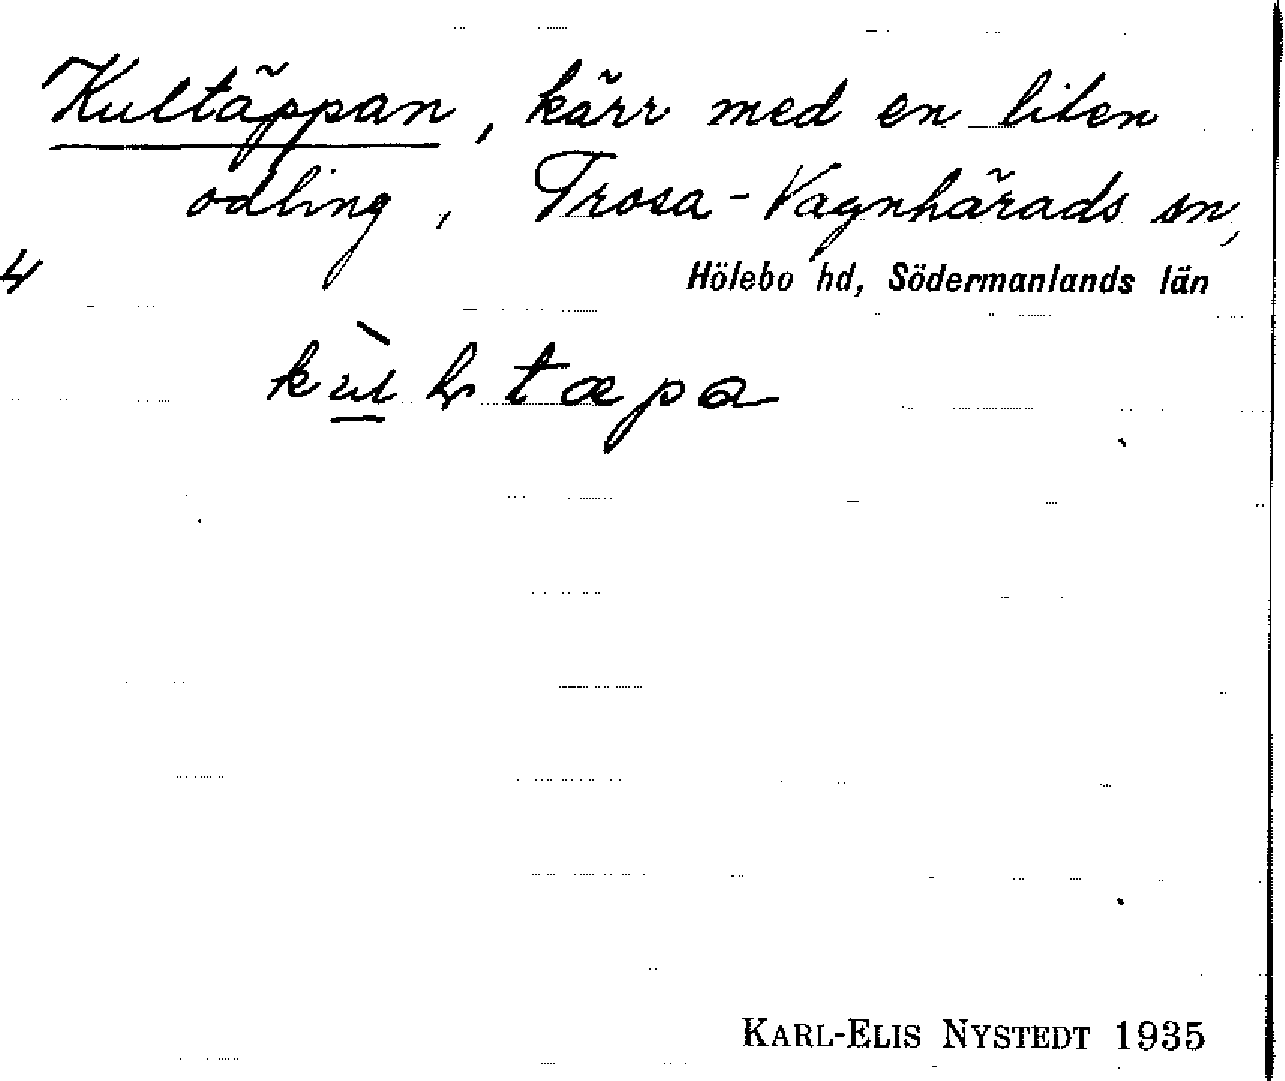 Kultäppan, kärr med en liten
odling, Trosa-Vagnhärads sn,
4
Hölebo hd, Södermanlands län
KARL-ELIS NYSTEDT 1935